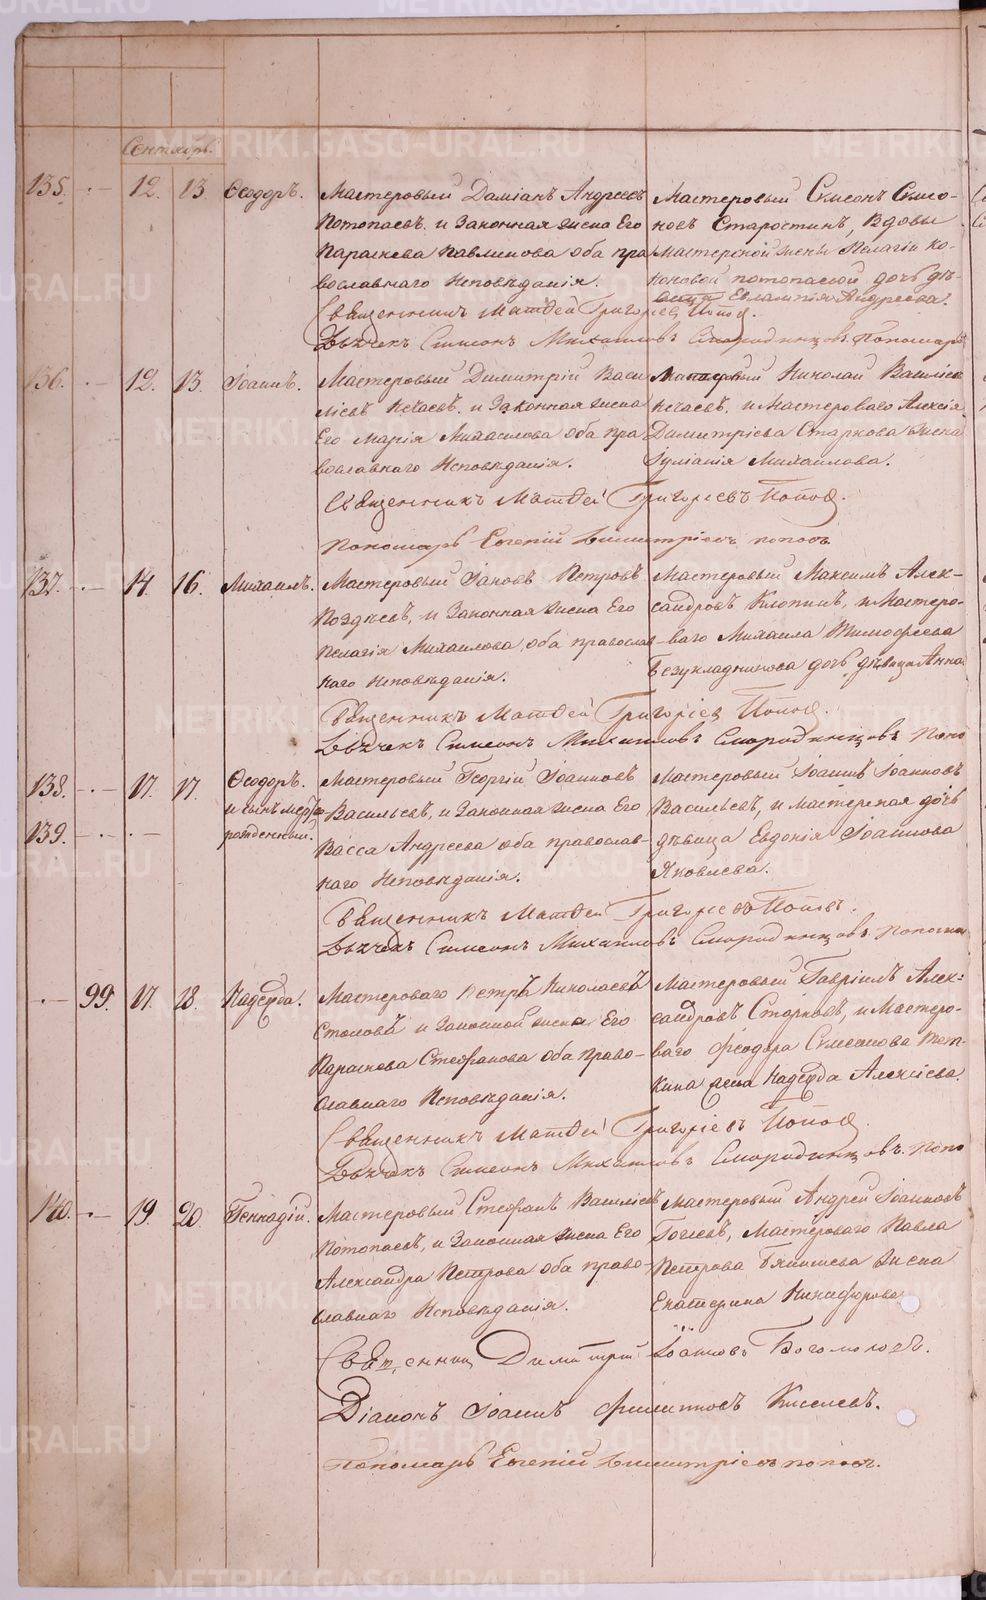 Сентябрь.
135. - 12. 13. Ѳеодоръ.
Мастеровый Даміанъ Андреевъ
Потопаевъ. и Законная жена Его
Параскева Павлинова оба пра
вославнаго Исповѣданія.
Мастеровый Симеонъ Симо-
новъ Старостинъ, Вдовы
мастерской жены Пелагіи
потопаевой дочь дѣ-
вица Евлампія Андреева.
Священникъ Матѳей Григорьевъ Поповъ.
Дьячекъ Симеонъ Михаиловъ Смородинцовъ. Пономарь
136. - 12. 13. Іоаннъ.
Мастеровый Димитрій Васи
ліевъ Нечаевъ. и Законная жена
Его Марія Михаилова оба пра
вославнаго Исповѣданія.
Мастеровый Николай Василіевъ
Нечаевъ, и Мастероваго Алексія
Димитріева Старкова жена
Іуліанія Михаилова.
Священникъ Матѳей Григоріевъ Поповъ.
Пономарь Евгеній Димитріевъ поповъ
137. - 14. 16. Михаилъ.
Мастеровый Іаковъ Петровъ
Позднеевъ, и Законная жена Его
Пелагія Михаилова, оба православ
наго Исповѣданія.
Мастеровый Максимъ Алек-
сандровъ Клопинъ, и Мастеро-
ваго Михаила Тимофеева
Безукладникова дочь дѣвица Анна
Священникъ Матѳей Григоріевъ Поповъ.
Дьячекъ Симеонъ Михаиловъ Смородинцовъ Поно
138. - 17. 17. Ѳеодоръ.
и сынъ мертво
рожденный.
139. - -
Мастеровый Георгій Іоанновъ
Васильевъ, и Законная жена Его
Васса Андреева оба православ-
наго Исповѣданія.
Мастеровый Іоаннъ Іоанновъ
Васильевъ, и мастерская дочь
дѣвица Евдокія Іоаннова
Яковлева.
Священникъ Матѳей Григоріевъ Поповъ.
Дьячекъ Симеонъ Михаиловъ Смородинцовъ. Понома
- 99. 17. 18. Надежда.
Мастероваго Петръ Николаевъ
Столовъ и Законной жена Его
Параскева Стефанова оба право-
славнаго Исповѣданія.
Мастеровый Гавріилъ Алек-
сандровъ Старковъ, и Мастеро-
ваго Феодора Симеонова
жена Надежда Алексіева.
Священникъ Матѳей Григоріевъ Поповъ.
Дьячекъ Симеонъ Михаиловъ Смородинцовъ. Поно
140. - 19. 20. Геннадій.
Мастеровый Стефанъ Василіевъ
Потопаевъ, и Законная жена Его
Александра Петрова оба право-
славнаго Исповѣданія.
Мастеровый Андрей Іоанновъ
Мастероваго Павла
Петрова жена
Екатерина Никифорова
Священникъ Димитрій Іоанновъ Богомоловъ.
Діаконъ Іоаннъ Филипповъ Киселевъ.
Пономарь Евгеній Димитріевъ поповъ.
METRIKI.GASO-URAL.RU